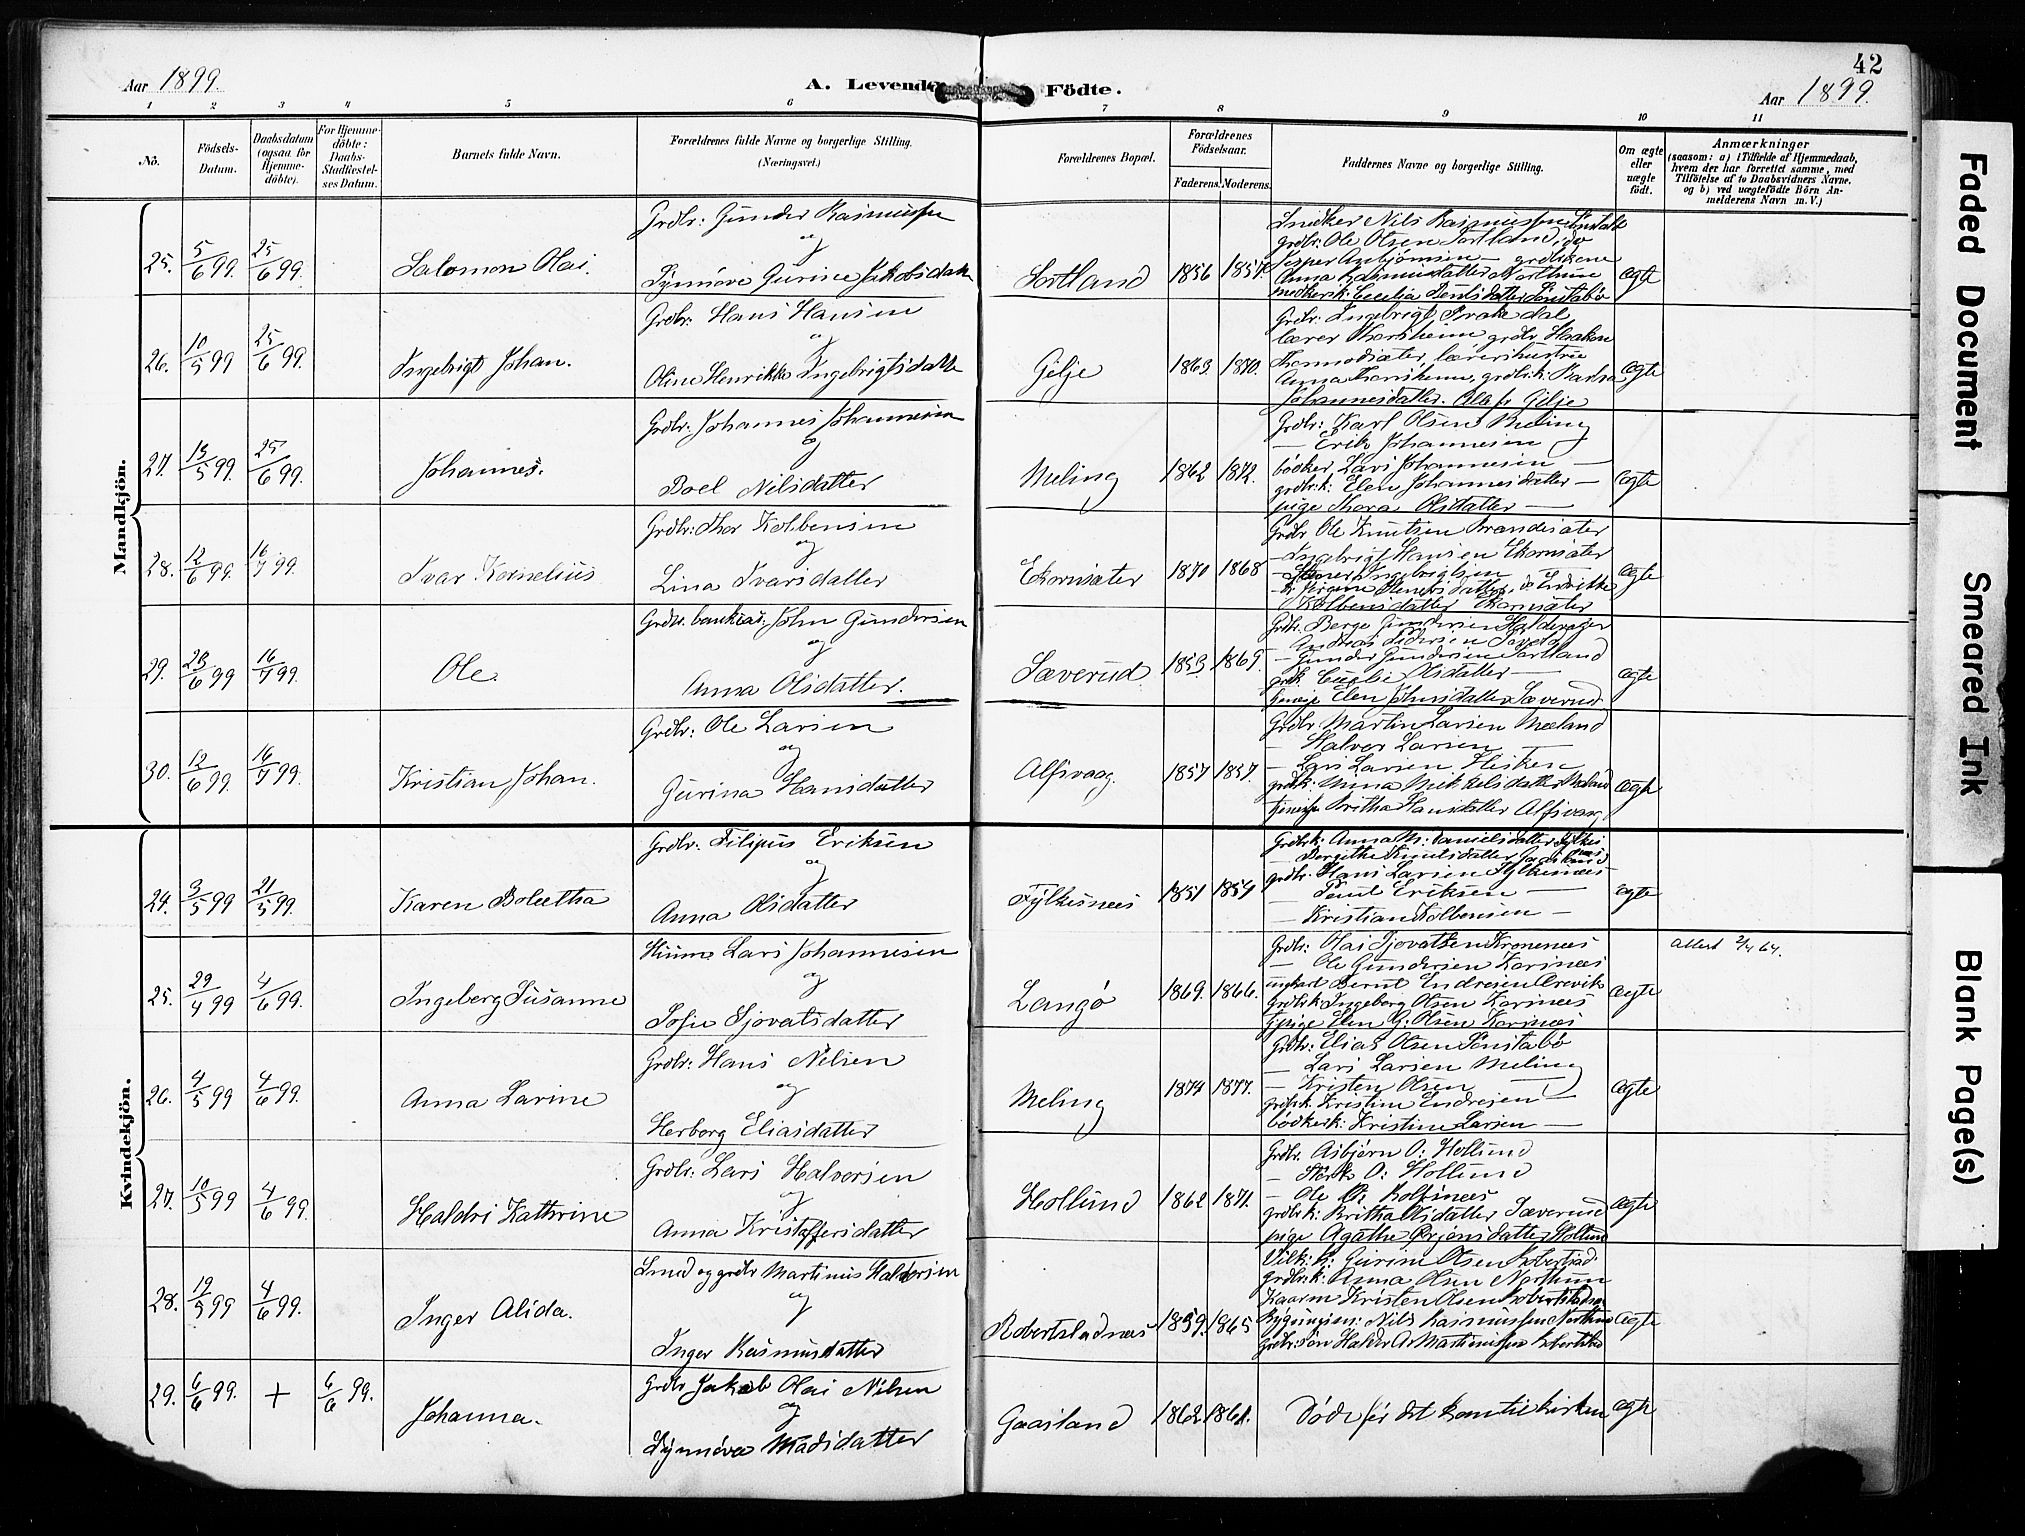 42
Aar 1899.
A. Levende Födte.
Aar 1899.
1 2 3 4 5 6 7 8 9 10 11
No.
Födsels-Datum.
Daabsdatum (ogsaa for Hjemme-döbte).
For Hjemme-döbte: Daabs-Stadfæstel-ses Datum.
Barnets fulde Navn.
Forældrenes fulde Navne og borgerlige Stilling.
(Næringsvei.)
Forældrenes Bopæl.
Forældrenes Födselsaar.
Faderens. Moderens.
Faddernes Navne og borgerlige Stilling.
Om ægte eller uægte födt.
Anmærkninger
(saasom: a) i Tilfælde af Hjemmedaab,
hvem der har forrettet samme, med
Tilföielse af to Daabsvidners Navne,
og b) ved uægtefödte Börn An-
melderens Navn m. V.)
Mandkjön.
25. 5/6 99. 25/6 99. Salomon Olai.
Grdbr: Gunder Rasmussen
og
Synnöve Gurine Jakobsdatter
Sortland 1856 1857.
Snedker Nils Rasmussen
grdbr: Ole Olsen Sortland, do
Jesper Asbjörnsen — grdbrkone
Anna Rasmusdatter Northun
ægte
26. 10/5 99 25/6 99. Ingebrigt Johan.
Grdbr: Hans Hansen
og
Oline Henrikke Ingebrigtsdatter
Gilje 1863. 1870.
Grdbr: Ingebrigt
lærer Thorsheim, grdbr Haakon
lærerhustru
Anna Thorsheim, grdbr.k:
Johannesdatter. Alle fr Gilje
ægte
27. 15/5 99. 25/6 99. Johannes.
Grdbr: Johannes Johannesen
og
Boel Nilsdatter
Meling 1862 1872.
Grdbr: Karl Olsen Meling
— Erik Johannesen
bödker Lars Johannesen —
grdbr.k: Elen Johannesdatter —
pige Thora Olsdatter —
ægte
28. 12/6 99. 16/7 99. Ivar Kornelius
Grdbr: Thor Kolbensen
og
Lina Ivarsdatter
Ekornsæter 1870 1868
Grdbr Ole Knutsen
— Ingebrigt Hansen Ekornsæter
— Ingebrigtsen
Kolbensdatter Ekornsæter
ægte
29. 16/7 99. Ole.
Grdbr. John Gundersen
og
Anna Olsdatter.
Sæverud 1853 1869.
Grdbr. Berge Gundersen
Andreas Pedersen
— Gunder Gundersen Sortland
grdk. Olsdatter —
Elen Johnsdatter Sæverud.
ægte
30. 12/6 99. 16/7 99. Kristian Johan.
Grdbr: Ole Larsen
og
Gurina Hansdatter
Alfsvaag. 1857 1857.
Grdbr: Martin Larsen Mæland
— Halvor Larsen —
— Lars Larsen
grdbrk: Anna Mikkelsdatter Mæland
Britha Hansdatter Alfsvaag
ægte
Kvindekjön.
24. 3/5 99 21/5 99. Karen Boletha
Grdbr: Filipus Eriksen
og
Anna Olsdatter
Fylkesnæs 1851 1857
Grdbrk: Anna M: Danielsdatter Fylkesnæs
— Bergithe Knutsdatter Gaasland
grdbr. Hans Larsen Fylkesnæs
— Eriksen —
— Kristian Kolbensen —
ægte
25. 29/4 99 4/6 99. Ingeborg Susanne
Lars Johannesen
og
Sofie Sjovatsdatter
Langö 1869. 1866.
Grdbr: Olai Sjovatsen Kronenæs
— Ole Gundersen Karinæs
ungkarl Bernt Endresen
grdbrk: Ingeborg Olsen Karinæs
tjpige Elen G: Olsen Karinæs
ægte
Attest 2/4 64.
26. 4/5 99 4/6 99. Anna Larine
Grdbr: Hans Nilsen
og
Herborg Eliasdatter
Meling 1874 1877.
Grdbr: Elias Olsen Sönstabö
— Lars Larsen Meling
— Kristen Olsen —
grdbrk: Kristine Endresen —
bödkerk: Kristine Larsen —
ægte
27. 10/5 99 4/6 99. Haldri Kathrine
Grdbr: Lars Halvorsen
og
Anna Kristoffersdatter
Hollund 1862 1871.
Grdbr. Asbjörn O: Hollund
— O: Hollund
— Ole
grdbrk: Britha Olsdatter Sæverud
pige Agathe Örjansdatter Hollund
ægte
28. 19/5 99 4/6 99. Inger Alida.
Smed og grdbr Martinus Haldorsen
og
Inger Rasmusdatter
Robertstadnæs 1859. 1865
Gurine Olsen Robertstad
grdbr.k: Anna Olsen Northun
Kaarm Kristen Olsen Robertstadnæs
Bygningsm: Nils Rasmussen Northun
Martinussen Robertstad
ægte
29. 6/6 99. + 6/6 99. Johanna.
Grdbr Jakob Olai Nilsen
og
Synnöva Madsdatter
Gaasland 1862. 1861.
Döde för det kom til kirken
ægte
Faded Document
Smeared Ink
Blank Page(s)